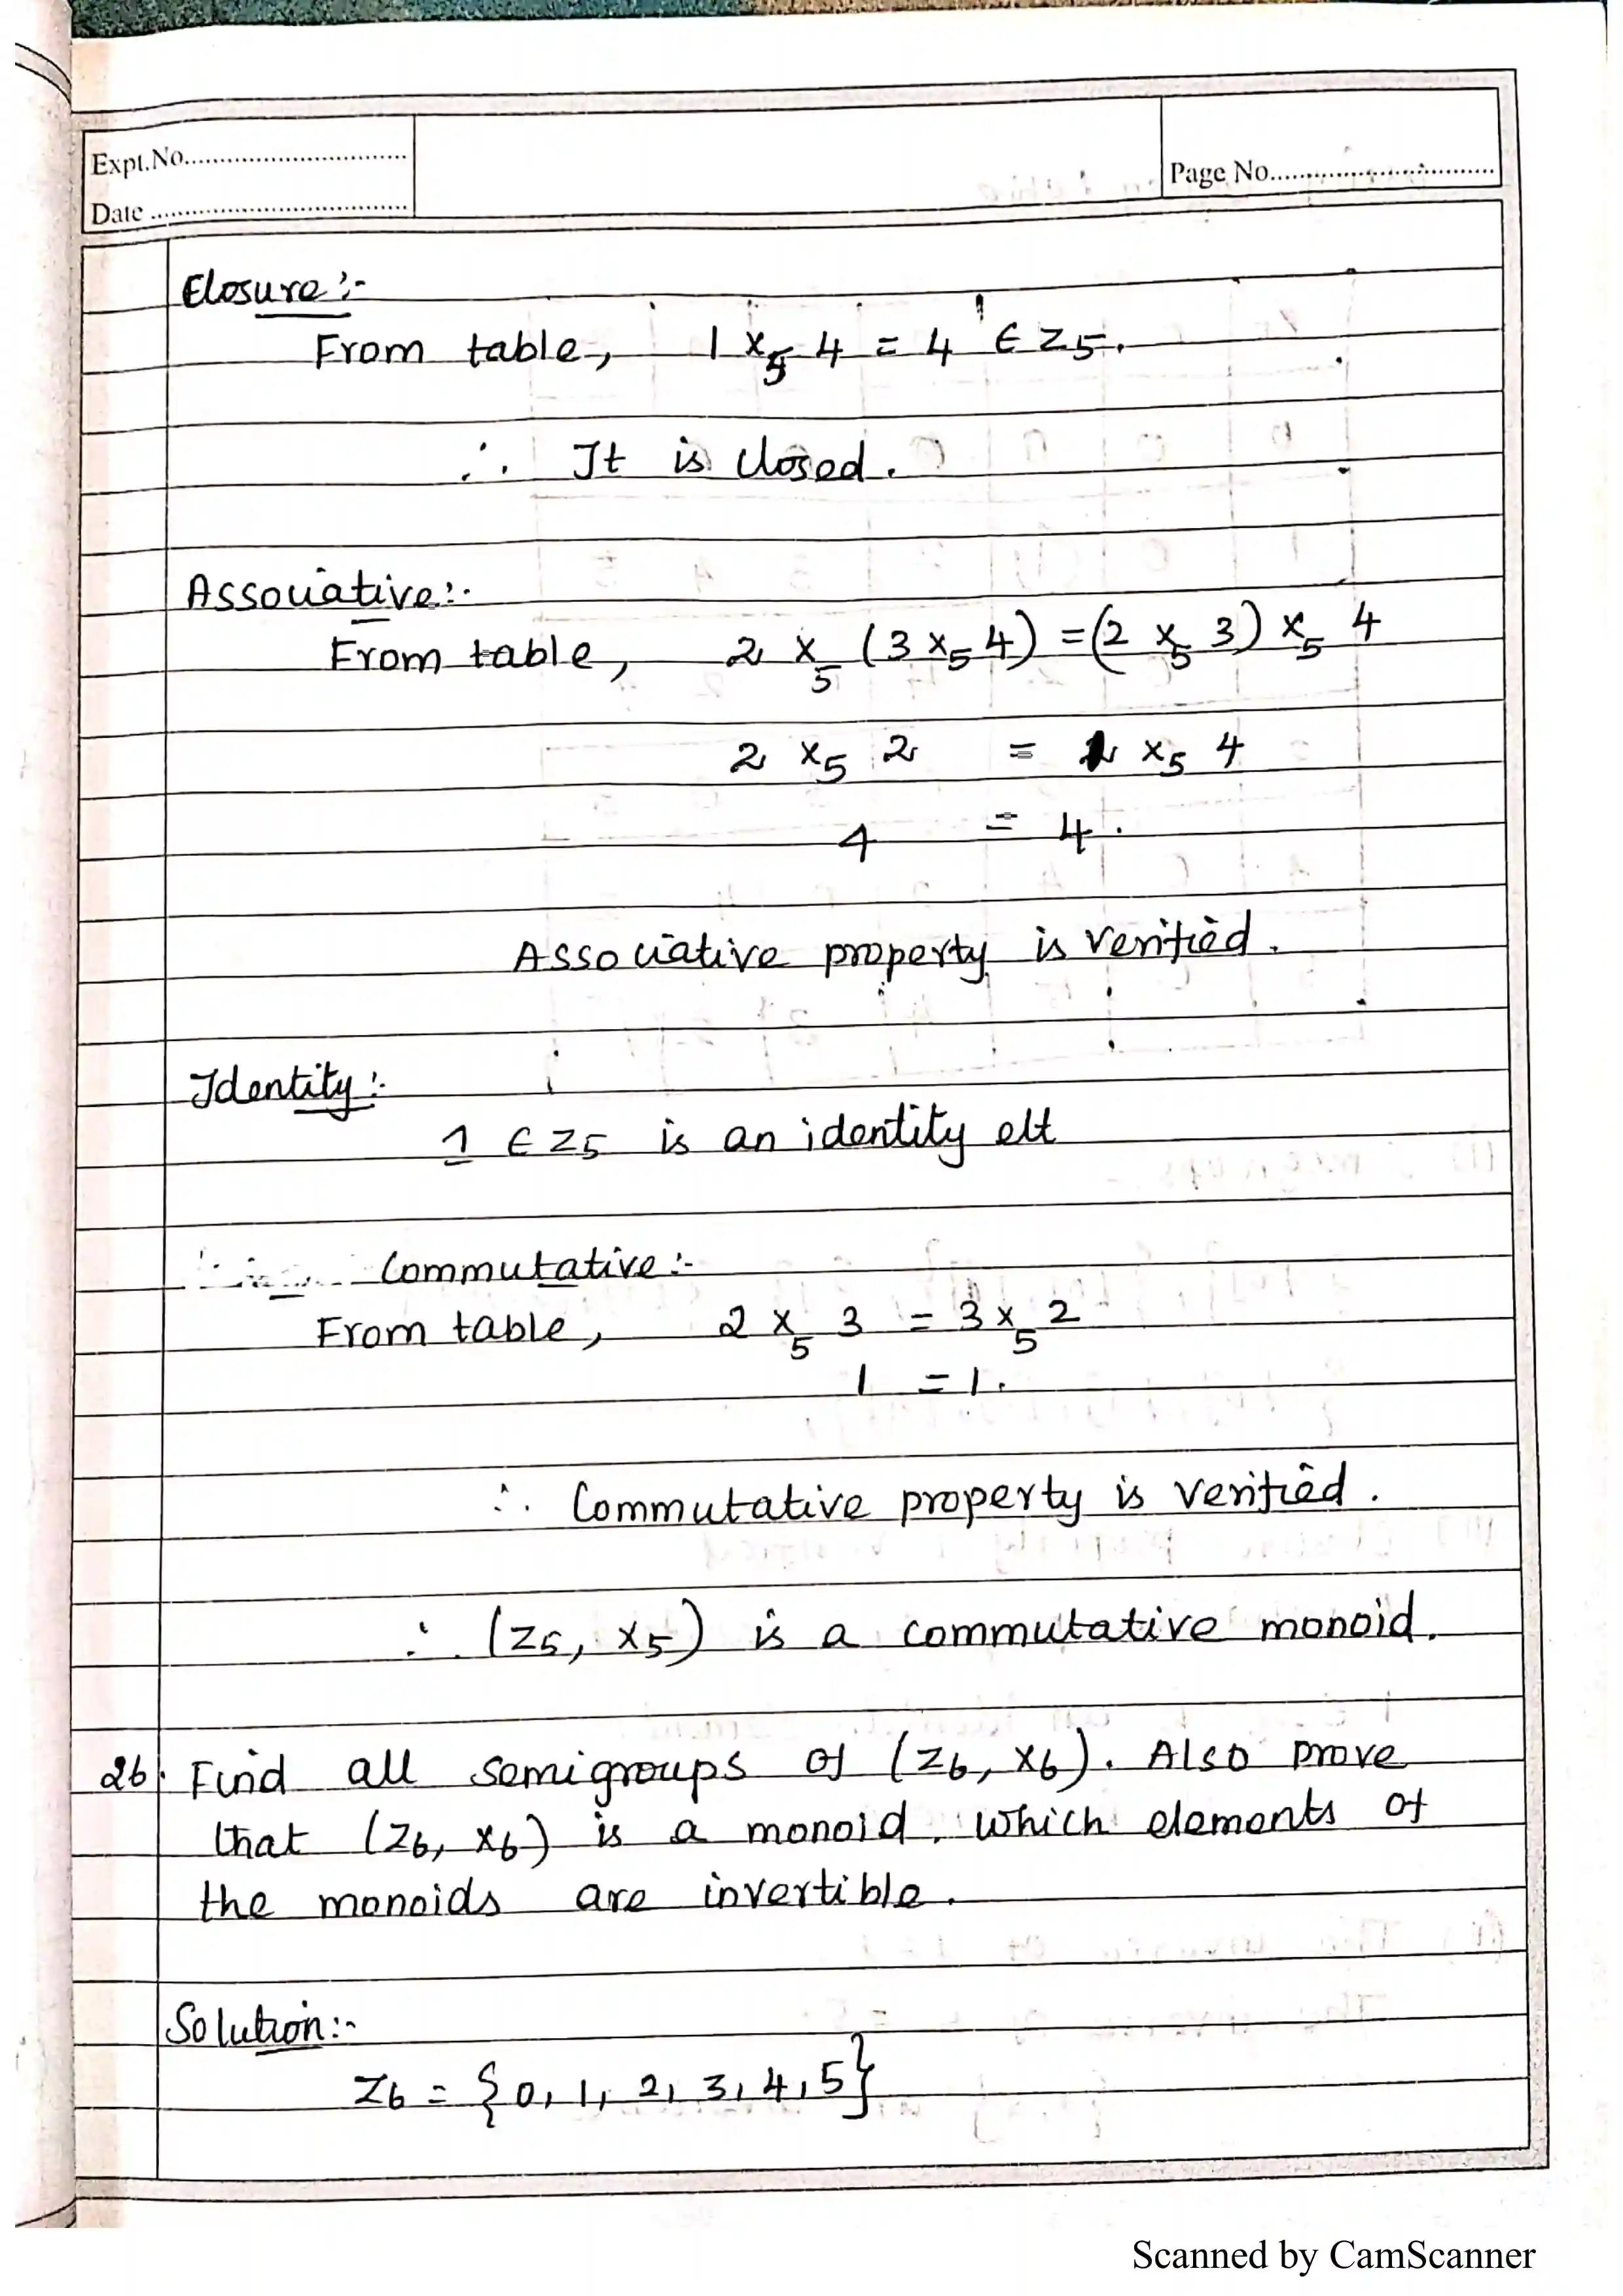 Expt.No..............................
Page No..............................
Date ..................................
Closure :-
From table, 1 ×₅ 4 = 4 ∈ Z5.
∴ It is closed.
Associative:-
From table, 2 ×₅ (3 ×₅ 4) = (2 ×₅ 3) ×₅ 4
2 ×₅ 2 = 1 ×₅ 4
4 = 4.
Associative property is verified.
Identity:-
1 ∈ Z5 is an identity elt
Commutative:-
From table, 2 ×₅ 3 = 3 ×₅ 2
1 = 1.
∴ Commutative property is verified.
∴ (Z5, ×5) is a commutative monoid.
26. Find all semigroups of (Z6, ×6). Also prove
that (Z6, ×6) is a monoid. Which elements of
the monoids are invertible.
Solution:-
Z6 = {0, 1, 2, 3, 4, 5}
Scanned by CamScanner